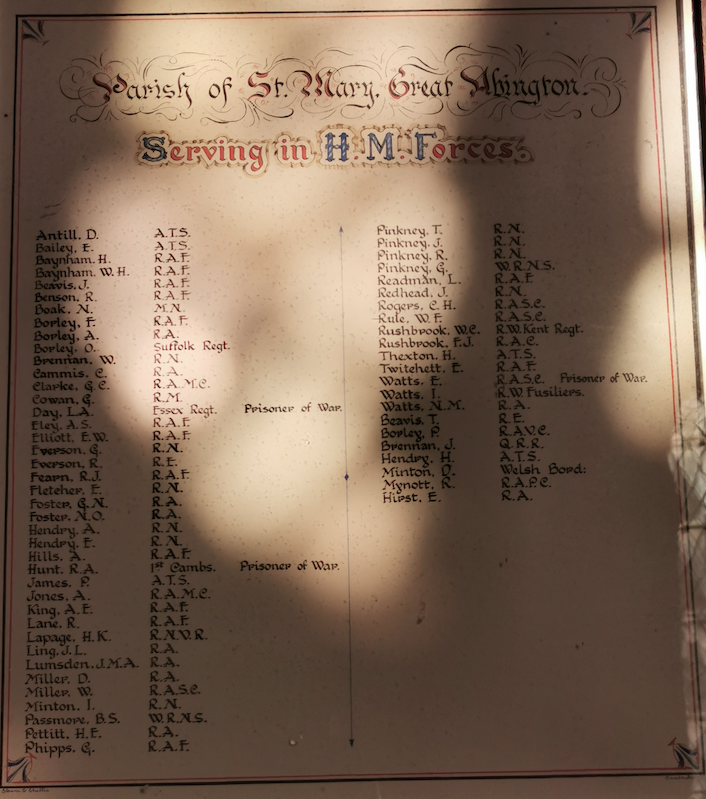 Parish of St. Mary. Great Abington.
Serving in H.M.Forces.
Antill, D. A.T.S.
Bailey, E. A.T.S.
Baynham, H. R.A.F.
Baynham, W.H. R.A.F.
Beavis, J. R.A.F.
Benson, R. R.A.F.
Boak, N. M.N.
Borley, F. R.A.F.
Borley, A. R.A.
Borley, O. Suffolk Regt.
Brennan, W. R.N.
Cammis, C. R.A.
Clarke, G.C. R.A.M.C.
Cowan, G. R.M.
Day, L.A. Essex Regt. Prisoner of War.
Eley, A.S. R.A.F.
Elliott, E.W. R.A.F.
Everson, G. R.N.
Everson, R. R.E.
Fearn, R.J. R.A.F.
Fletcher, E. R.N.
Foster, G.N. R.A.
Foster, N.O. R.A.
Hendry, A. R.N.
Hendry, E. R.N.
Hills, A. R.A.F.
Hunt, R.A. 1st Cambs. Prisoner of War.
James, P. A.T.S.
Jones, A. R.A.M.C.
King, A.E. R.A.F.
Lane, R. R.A.F.
Lapage, H.K. R.N.V.R.
Ling, J.L. R.A.
Lumsden, J.M.A. R.A.
Miller, D. R.A.
Miller, W. R.A.S.C.
Minton, I. R.N.
Passmore, B.S. W.R.N.S.
Pettitt, H.E. R.A.
Phipps, G. R.A.F.
Pinkney, T. R.N.
Pinkney, J. R.N.
Pinkney, R. R.N.
Pinkney, G. W.R.N.S.
Readman, L. R.A.F.
Redhead, J. R.N.
Rogers, C.H. R.A.S.C.
Rule, W.F. R.A.S.C.
Rushbrook, W.C. R.W.Kent Regt.
Rushbrook, F.J. R.A.C.
Thexton, H. A.T.S.
Twitchett, E. R.A.F.
Watts, E. R.A.S.C. Prisoner of War.
Watts, I. R.W.Fusiliers.
Watts, N.M. R.A.
Beavis, T. R.E.
Borley, P. R.A.V.C.
Brennan, J. Q.R.R.
Hendry, H. A.T.S.
Minton, O. Welsh Bord:
Mynott, R. R.A.P.C.
Hirst, E. R.A.